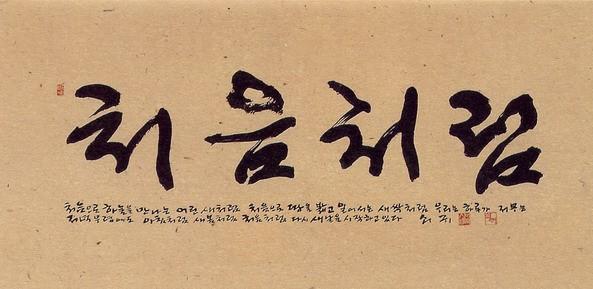 처음처럼
처음으로 하늘을 만나는 어린 새처럼 처음으로 땅을 일어서는 새싹처럼 우리는 하루가 저무는
저녁무렵에도 아침처럼 새봄처럼 처음처럼 다시 새날을 시작하고 있다 쇠귀